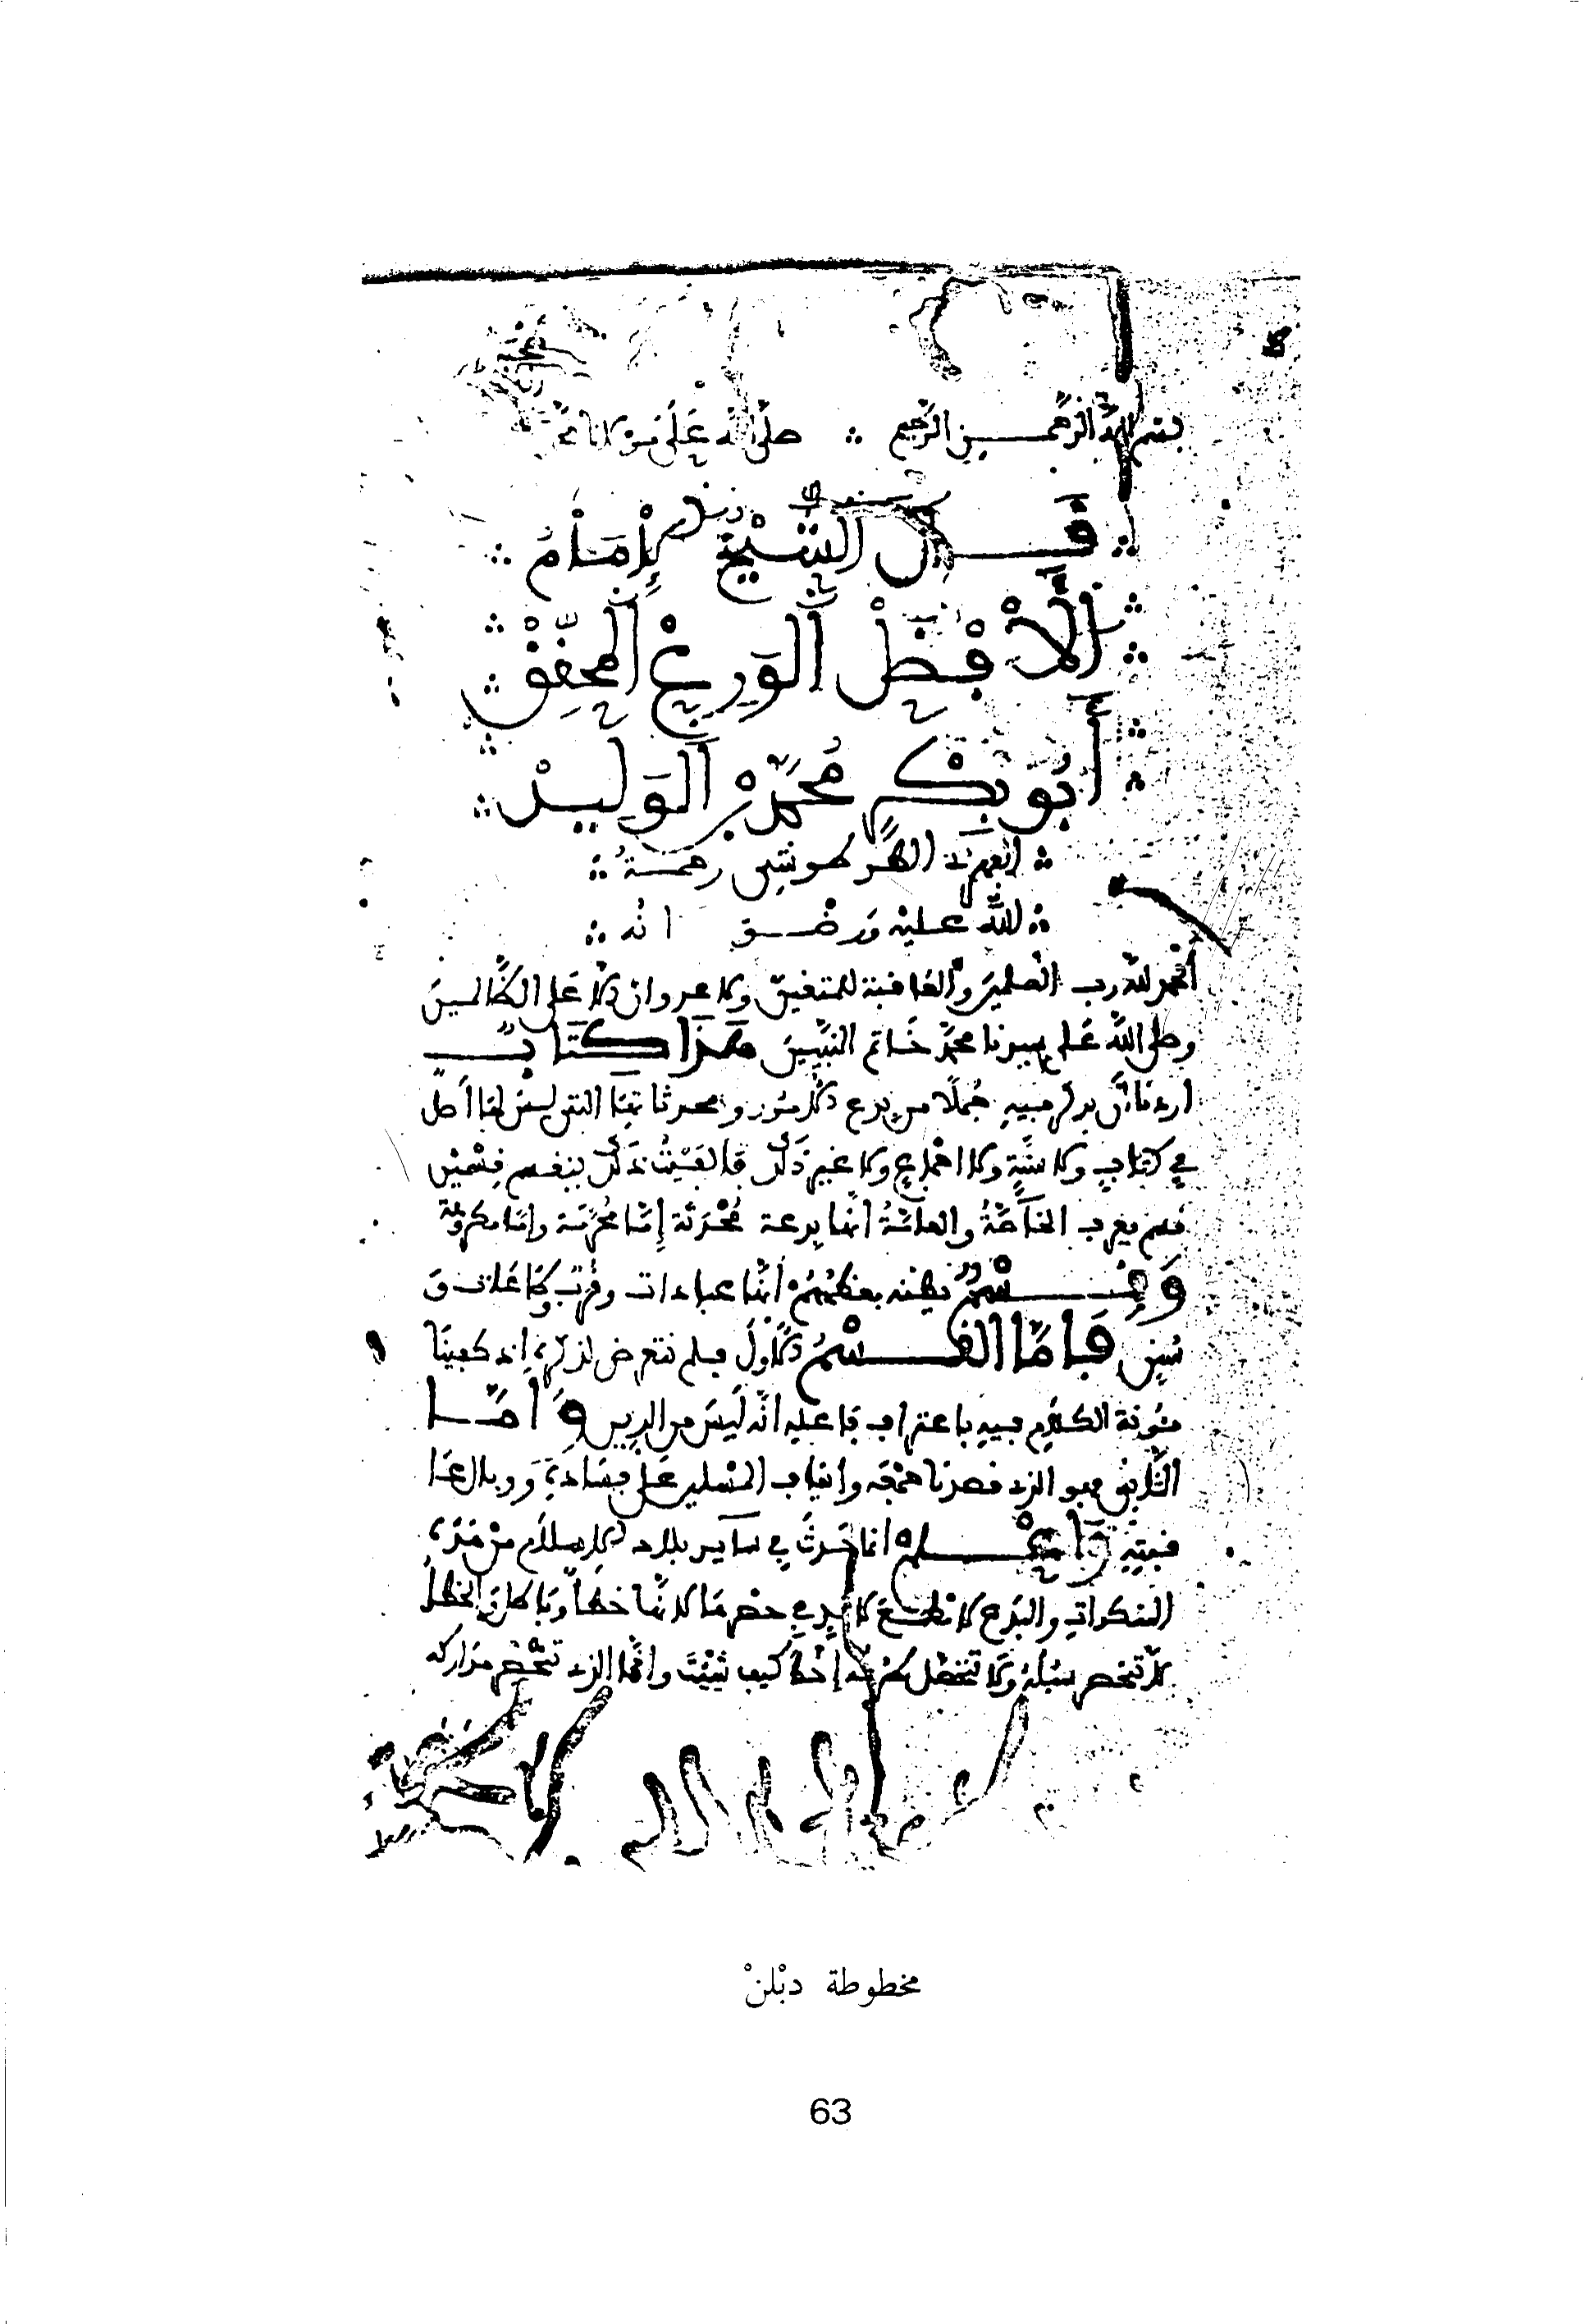 بسم الله الرحمن الرحيم ∴ صلى الله على مولانا محمد
قال الشيخ الإمام
الأفضل الورع المحقق
أبو بكر محمد بن الوليد
الفهري الطرطوشي رحمة
الله عليه ورضو انه
الحمد لله رب العلمين والعاقبة للمتقين ولا عدوان الا على الظالمين
وصلى الله على سيدنا محمد خاتم النبيين هذا كتاب
اردنا أن نذكر فيه جملا من بدع الامور ومحدثاتها التي ليس لها أصل
في كتاب ولا سنة ولا اجماع ولا غير ذلك فالفيت ذلك ينقسم قسمين
قسم يعرف الخاصة والعامة انها بدعة محدثة إما محرمة وإما مكروهة
وقسم يظنه بعضهم انها عبادات وقرب وطاعات و
سنن فاما القسم الاول فلم نتعرض لذكره اذ كفينا
مئونة الكلام فيه باعتراف فاعله انه ليس من الدين واما
الثاني فهو الذي قصدنا جمعه وايقاف المسلمين على فساده ووبال عا
قبته واعلم انما حدث في ساير بلاد الاسلام من هذه
المنكرات والبدع لا مطمع لاحد في حصرها لانها خطأ وباطل والخطأ
لا تنحصر سبله ولا تتحصل طرقه إخط كيف شئت وانما الذي تنحصر مداركه
مخطوطة دبْلنْ
63